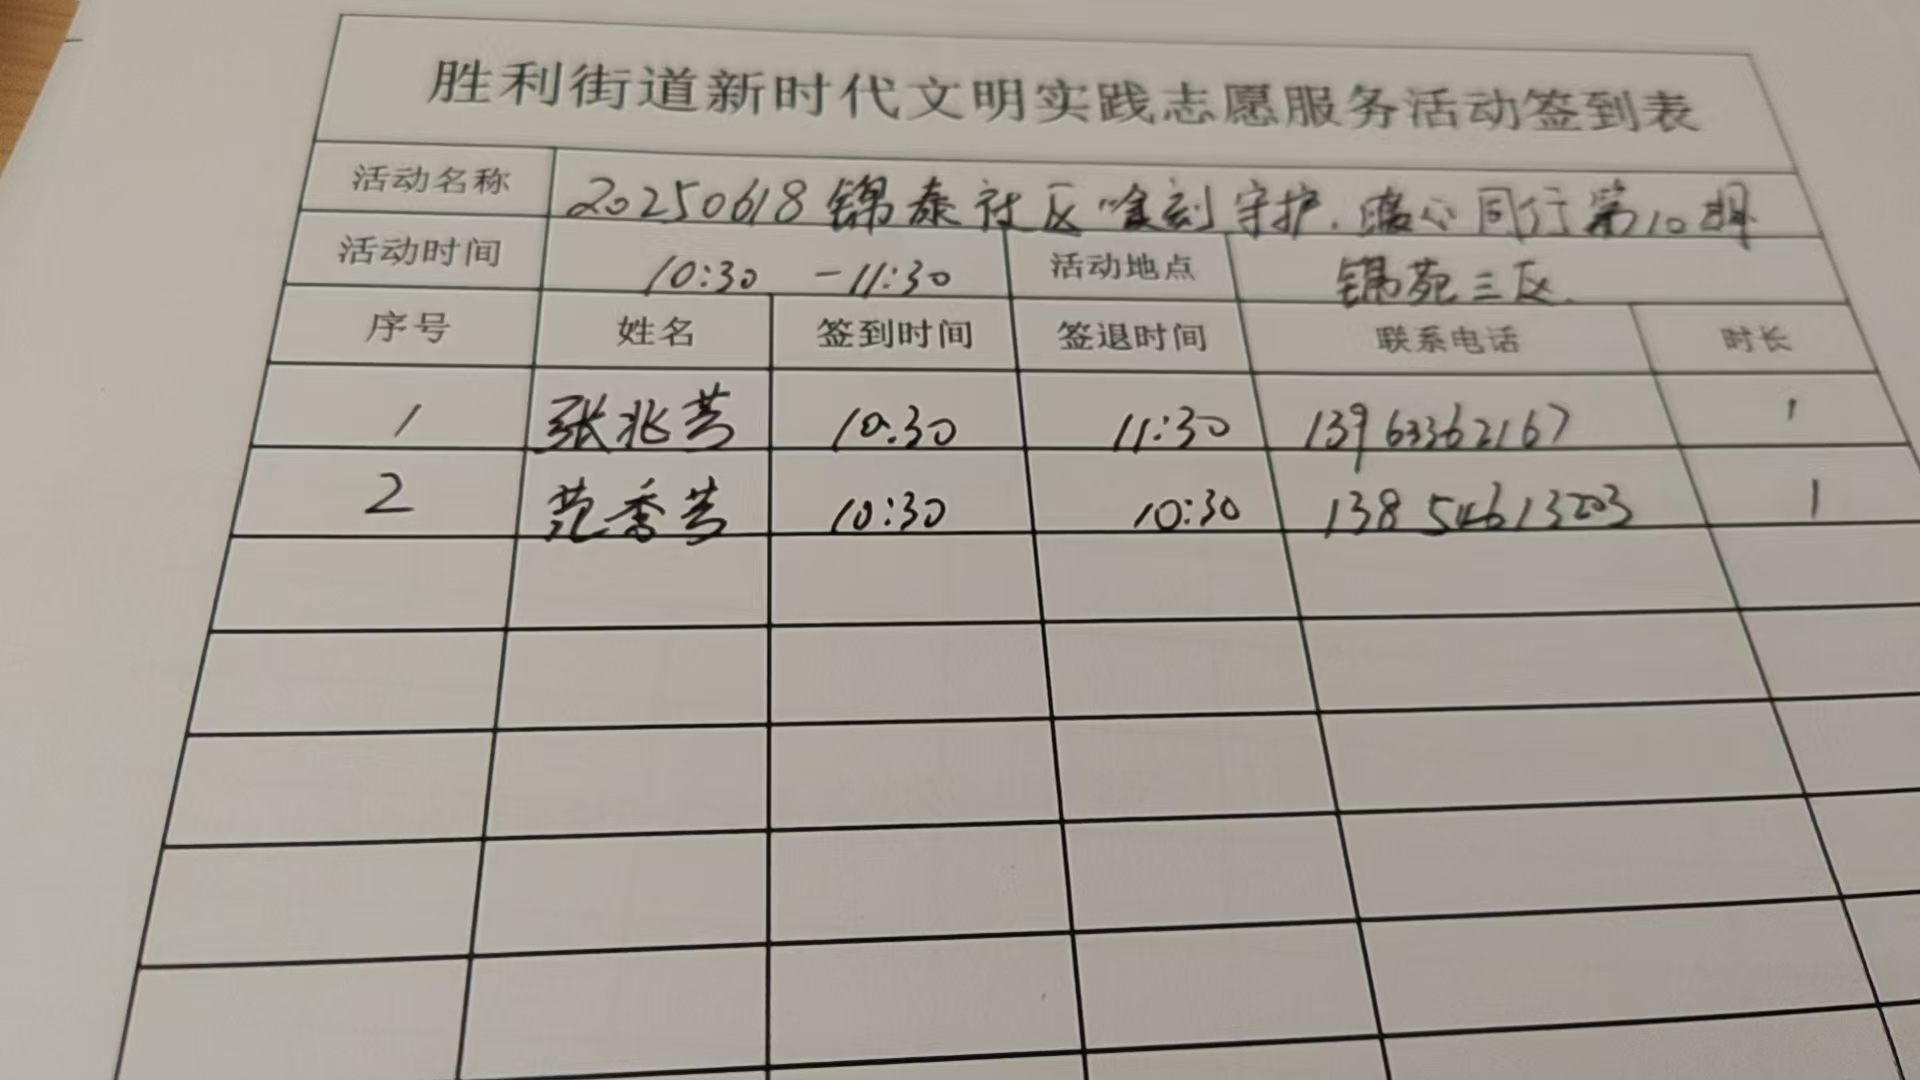 胜利街道新时代文明实践志愿服务活动签到表
活动名称 20250618锦泰社区哈刻守护.暖心同行第10期
活动时间 10:30 -11:30 活动地点 锦苑三区.
序号 姓名 签到时间 签退时间 联系电话 时长
1 张兆芳 10.30 11:30 13963362167 1
2 范香芳 10:30 10:30 13854613203 1